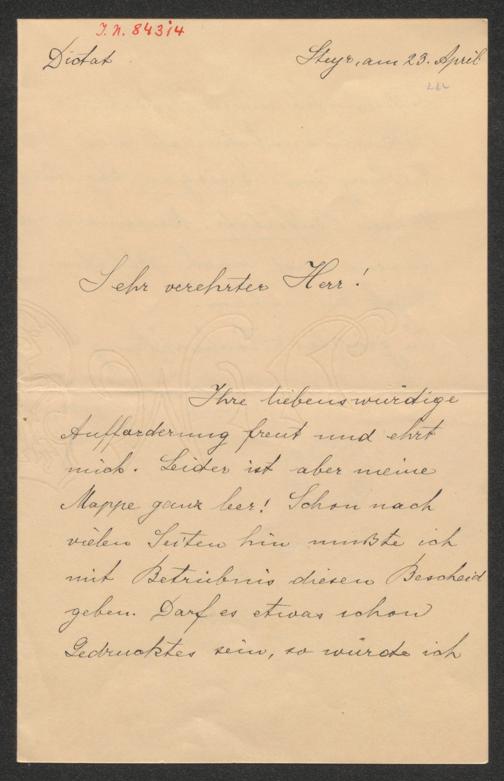 I. N. 84314
Dictat
Steyr, am 23. April
Sehr verehrter Herr!
Ihre liebenswürdige
Aufforderung freut und ehrt
mich. Leider ist aber meine
Mappe ganz leer! Schon nach
vielen Seiten hin mußte ich
mit Betrübnis diesen Bescheid
geben. Darf es etwas schon
Gedrucktes sein, so würde ich